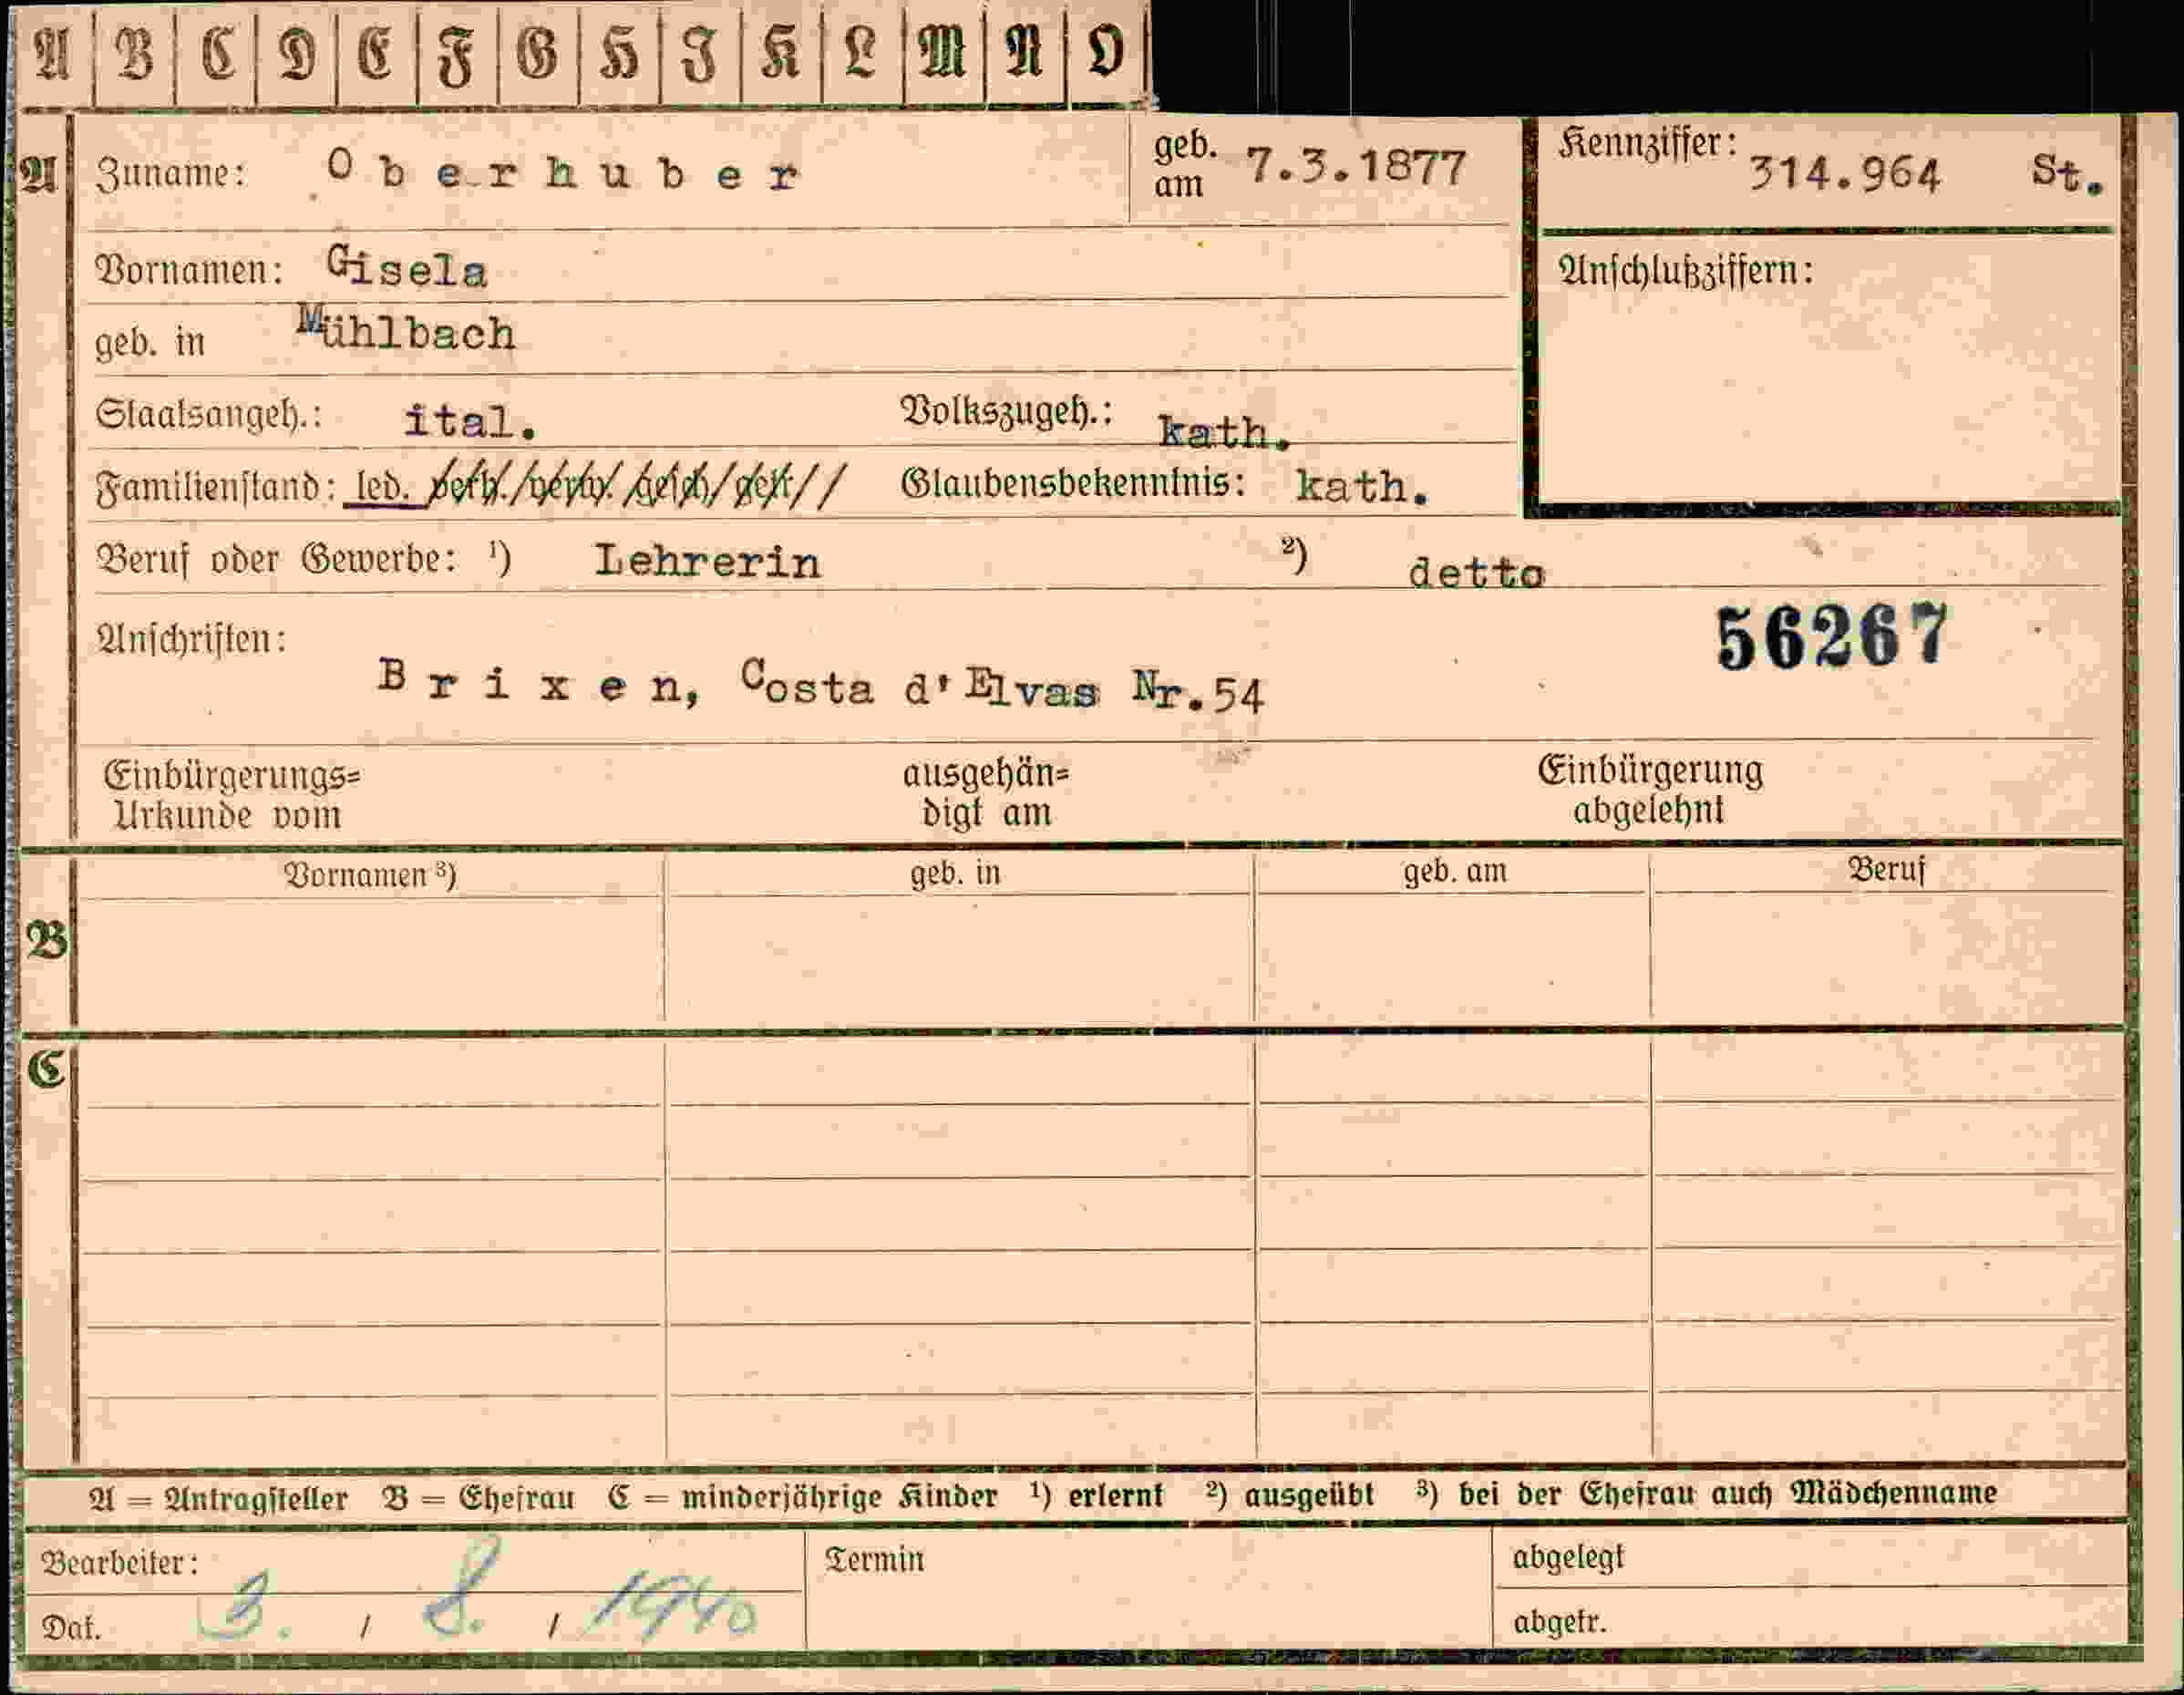 A B C D E F G H I K L M N O
A Zuname: Oberhuber geb. am 7.3.1877 Kennziffer: 314.964 St.
Vornamen: Gisela Anschlußziffern:
geb. in Mühlbach
Staatsangeh.: ital. Volkszugeh.: kath.
Familienstand: led. verh./verw./gesch./getr. // Glaubensbekenntnis: kath.
Beruf oder Gewerbe: ¹) Lehrerin ²) detto
Anschriften: 56267
Brixen, Costa d'Elvas Nr.54
Einbürgerungs= ausgehän= Einbürgerung
Urkunde vom digt am abgelehnt
Vornamen ³) geb. in geb. am Beruf
B
C
A = Antragsteller B = Ehefrau C = minderjährige Kinder ¹) erlernt ²) ausgeübt ³) bei der Ehefrau auch Mädchenname
Bearbeiter: Termin abgelegt
Dat. 3. / 8. / 1940 abgetr.